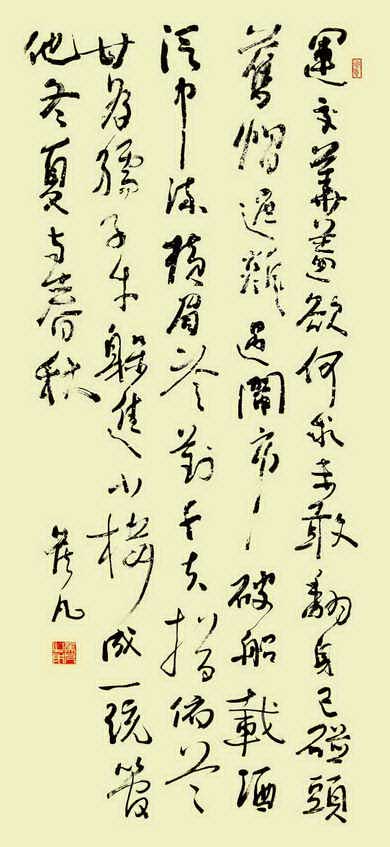 運交華蓋欲何求未敢翻身已碰頭
舊帽遮顏過鬧市破船載酒
泛中流橫眉冷對千夫指俯首
甘為孺子牛躲進小樓成一統管
他冬夏与春秋
凡